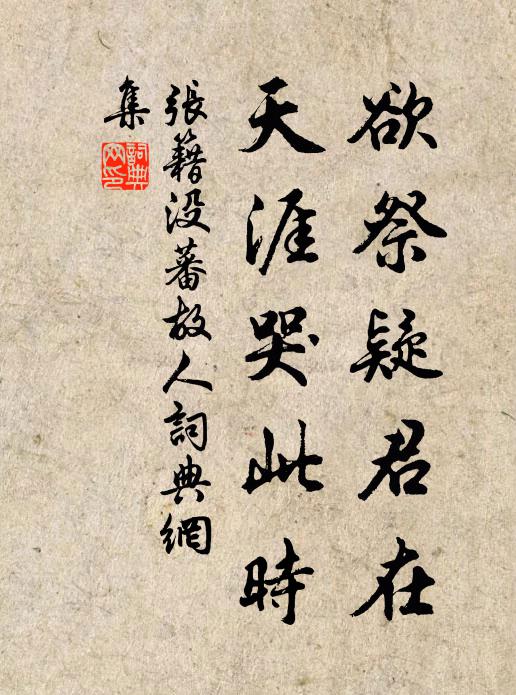 欲祭疑君在
天涯哭此時
張籍没蕃故人詞典網
集
詞典
网印